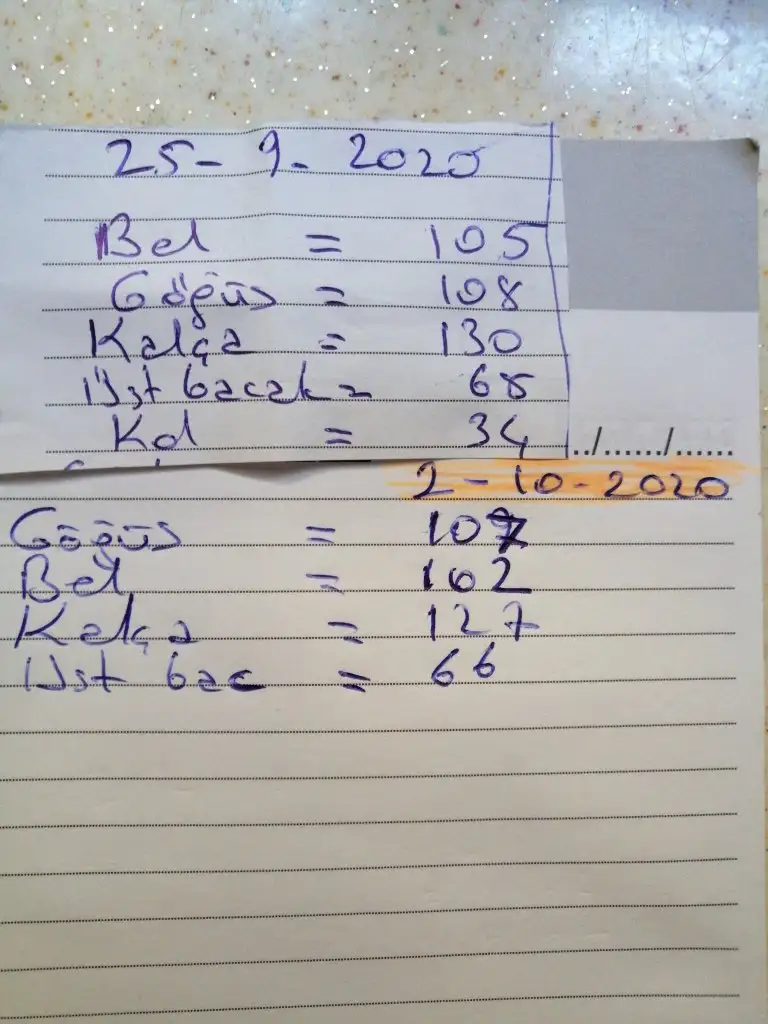 25-9-2020
Bel = 105
Göğüs = 108
Kalça = 130
Üst bacak = 68
Kol = 34
../....../......
2-10-2020
Göğüs = 107
Bel = 102
Kalça = 127
Üst bac = 66